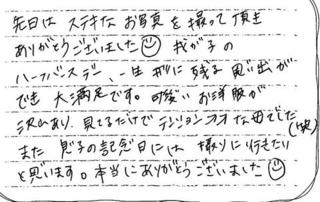 先日は ステキな お写真を 撮って 頂き
ありがとうございました☺ 我が子の
ハーフバースデー、一生 形に 残る 思い出が
でき 大満足です。可愛い お洋服が
沢山あり、見てるだけで テンション↑な母でした(笑)
また 息子の記念日には 撮りに行きたい
と思います。本当にありがとうございました☺